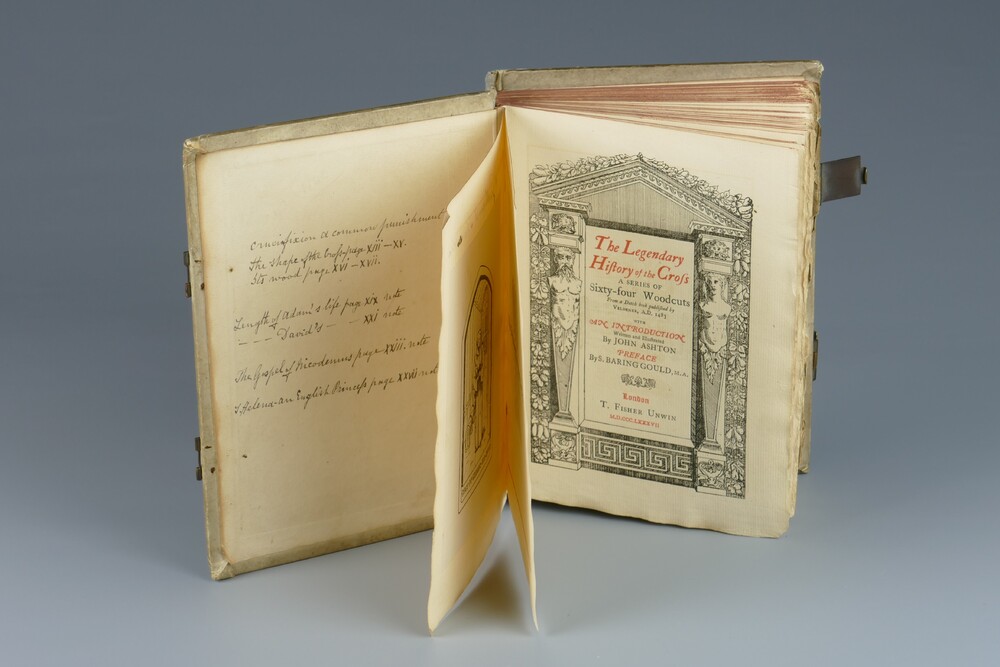 crucifixion a common punishment
The shape of the Cross page XIII — XV.
Its wood page XVI — XVII.
Length of Adam's life page XIX note
— — — David's — — XXI note
The Gospel of Nicodemus page XXIII. note
S. Helena - an English Princess page XXVII note
The Legendary
Hiſtory of the Croſs
A SERIES OF
Sixty-four Woodcuts
From a Dutch book published by
VELDENER, A.D. 1483
WITH
AN INTRODUCTION
Written and Illustrated
By JOHN ASHTON
PREFACE
By S. BARING GOULD, M.A.
London
T. FISHER UNWIN
M.D.CCC.LXXXVII